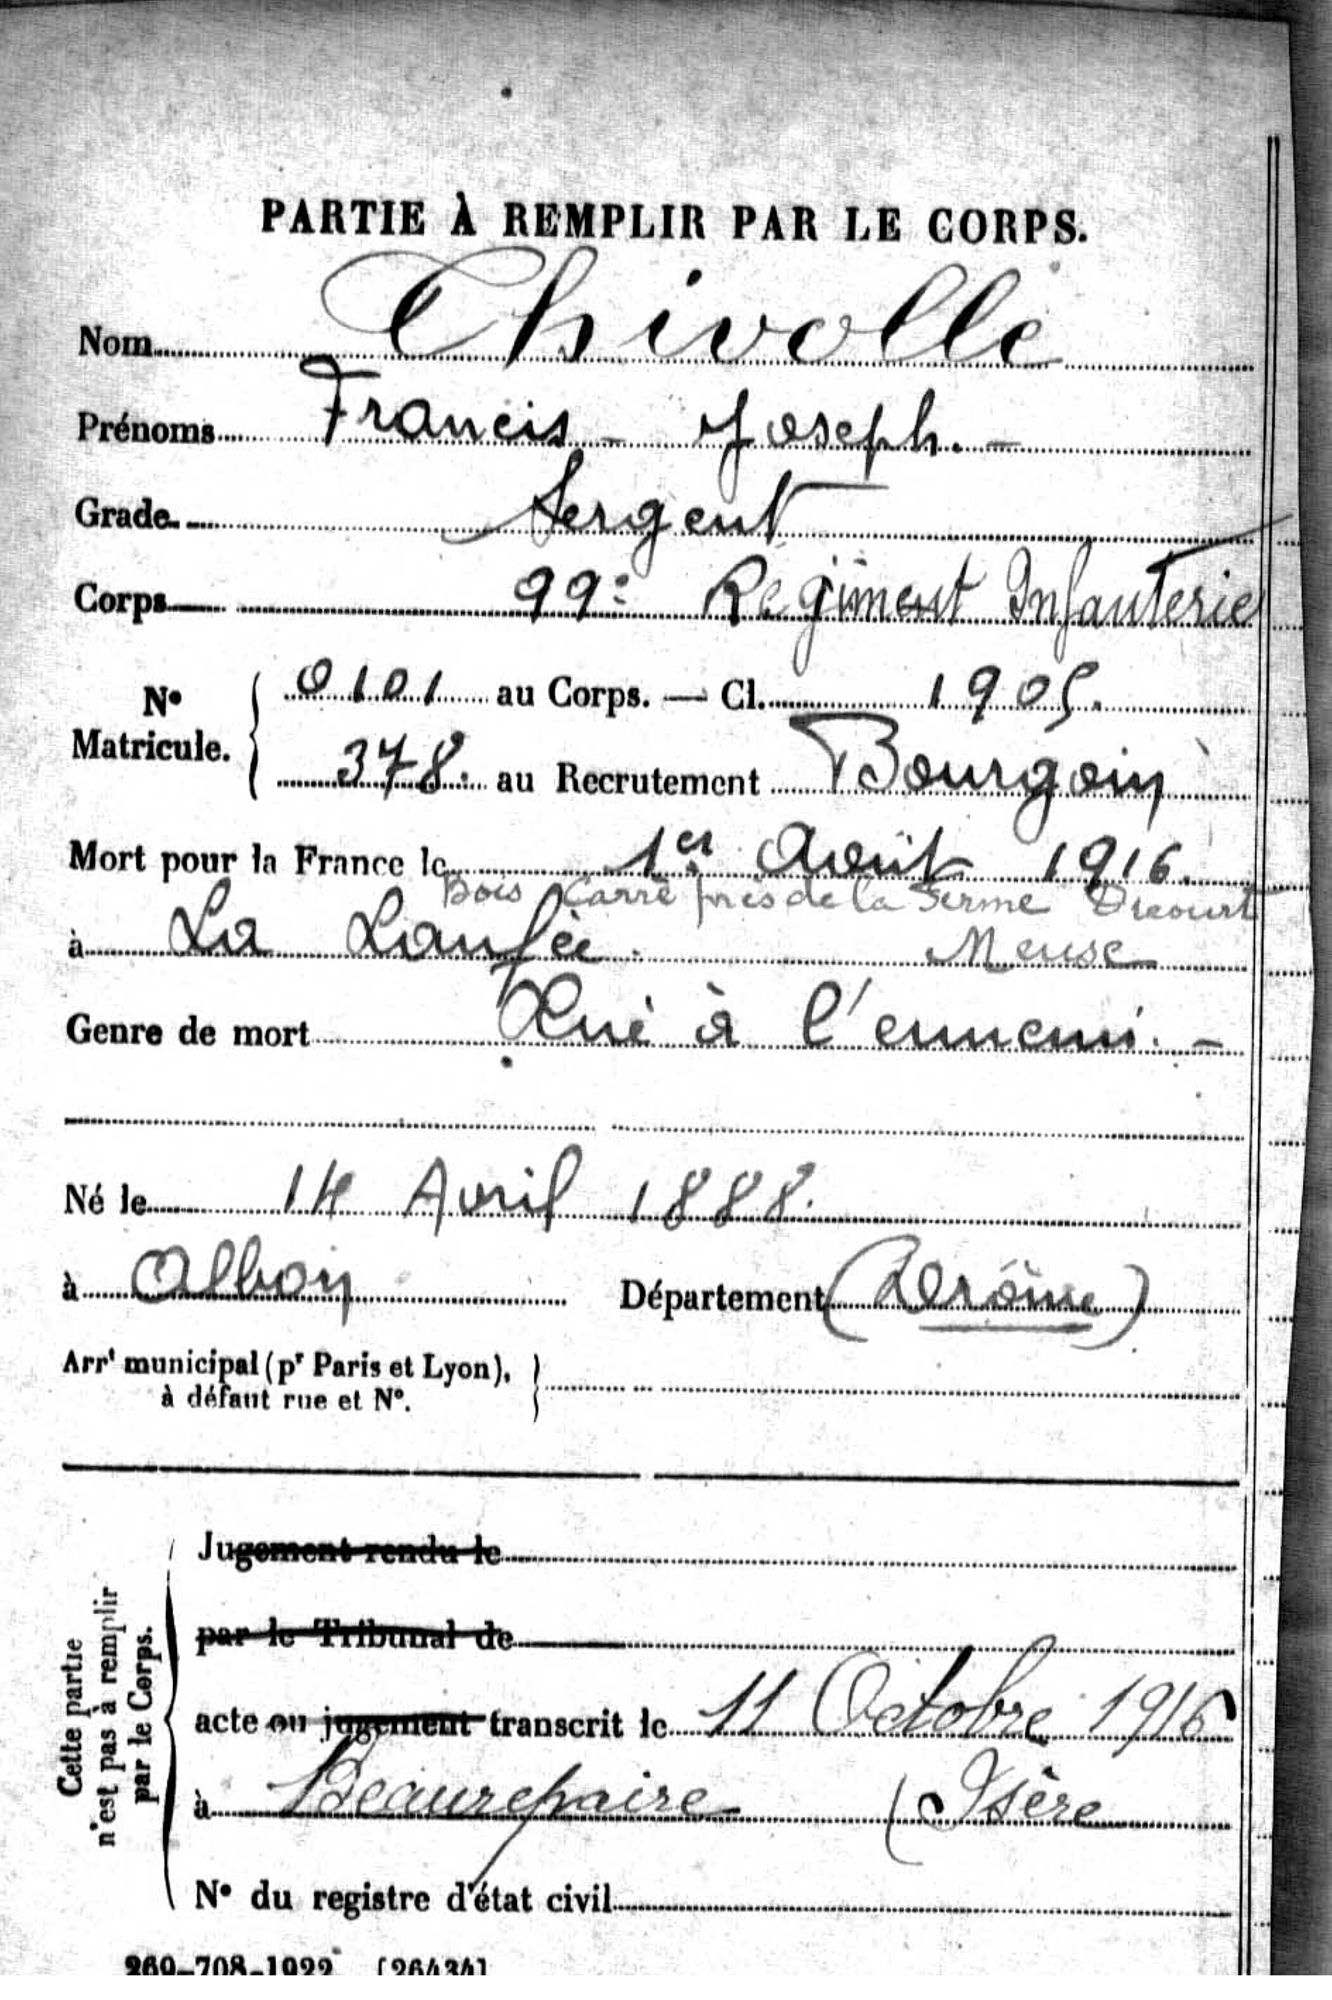 PARTIE À REMPLIR PAR LE CORPS.
Nom Chivolle
Prénoms Francis - Joseph. -
Grade Sergent
Corps 99e Régiment Infanterie
No Matricule. { 0101 au Corps. — Cl. 1905.
378. au Recrutement Bourgoin
Mort pour la France le 1er Août 1916.
Bois Carré près de la Ferme Dicourt
à La Laufée. Meuse
Genre de mort Tué à l'ennemi. -
Né le 14 Avril 1888.
à Albon Département (Drôme)
Arrt municipal (pr Paris et Lyon), }
à défaut rue et No.
Cette partie
n'est pas à remplir
par le Corps.
Jugement rendu le
par le Tribunal de
acte ou jugement transcrit le 11 Octobre 1916
à Beaurepaire (Isère
No du registre d'état civil
269-708-1922. [26434]